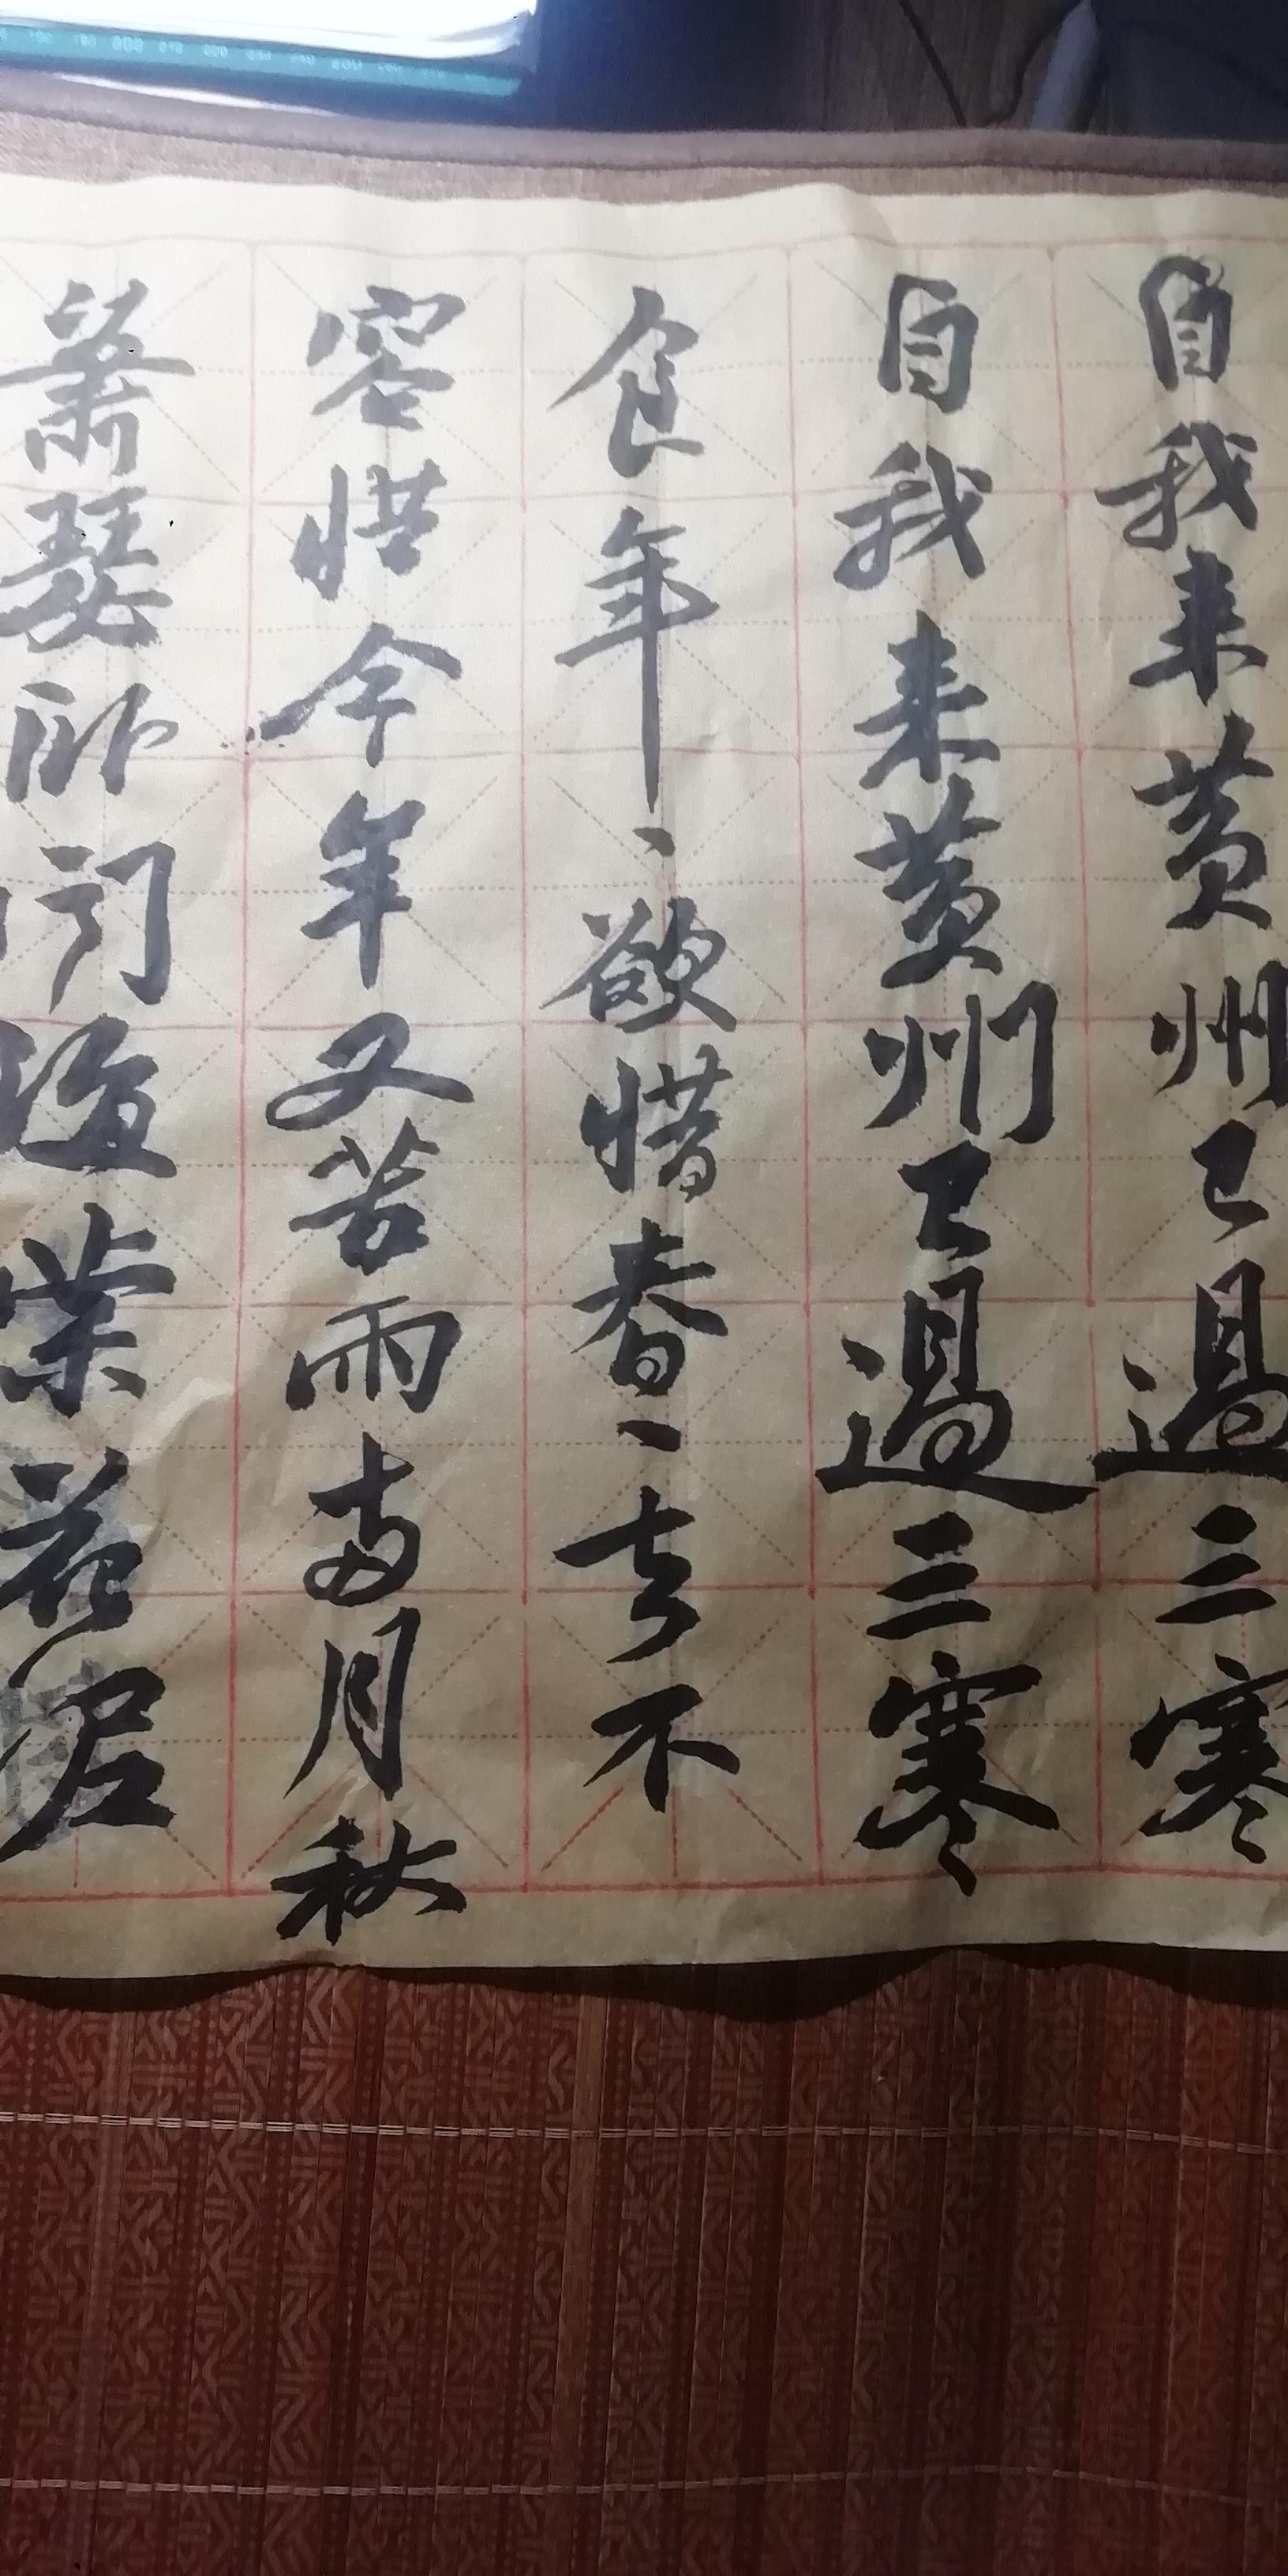 自我来黄州已過三寒
自我来黄州已過三寒
食年、欲惜春、去不
容惜今年又苦雨兩月秋
蕭瑟卧聞海棠花泥